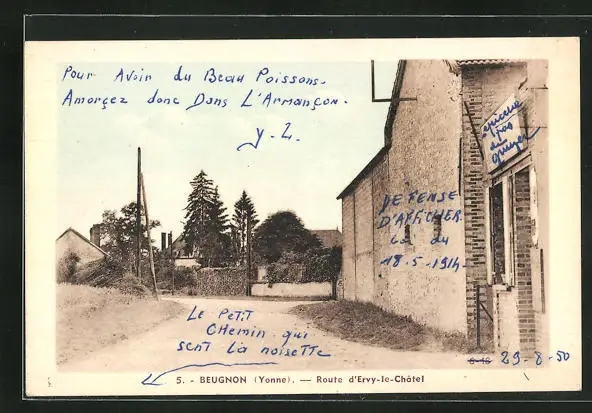 Pour Avoir du Beau Poissons.
Amorçez donc Dans L'Armançon.
y-Z
epicerie
DEFENSE
D'AFFICHER
Loi du
18.5.1914
Le Petit
chemin qui
sent la noisette
29-8-50
5. - BEUGNON (Yonne). — Route d'Ervy-le-Châtel